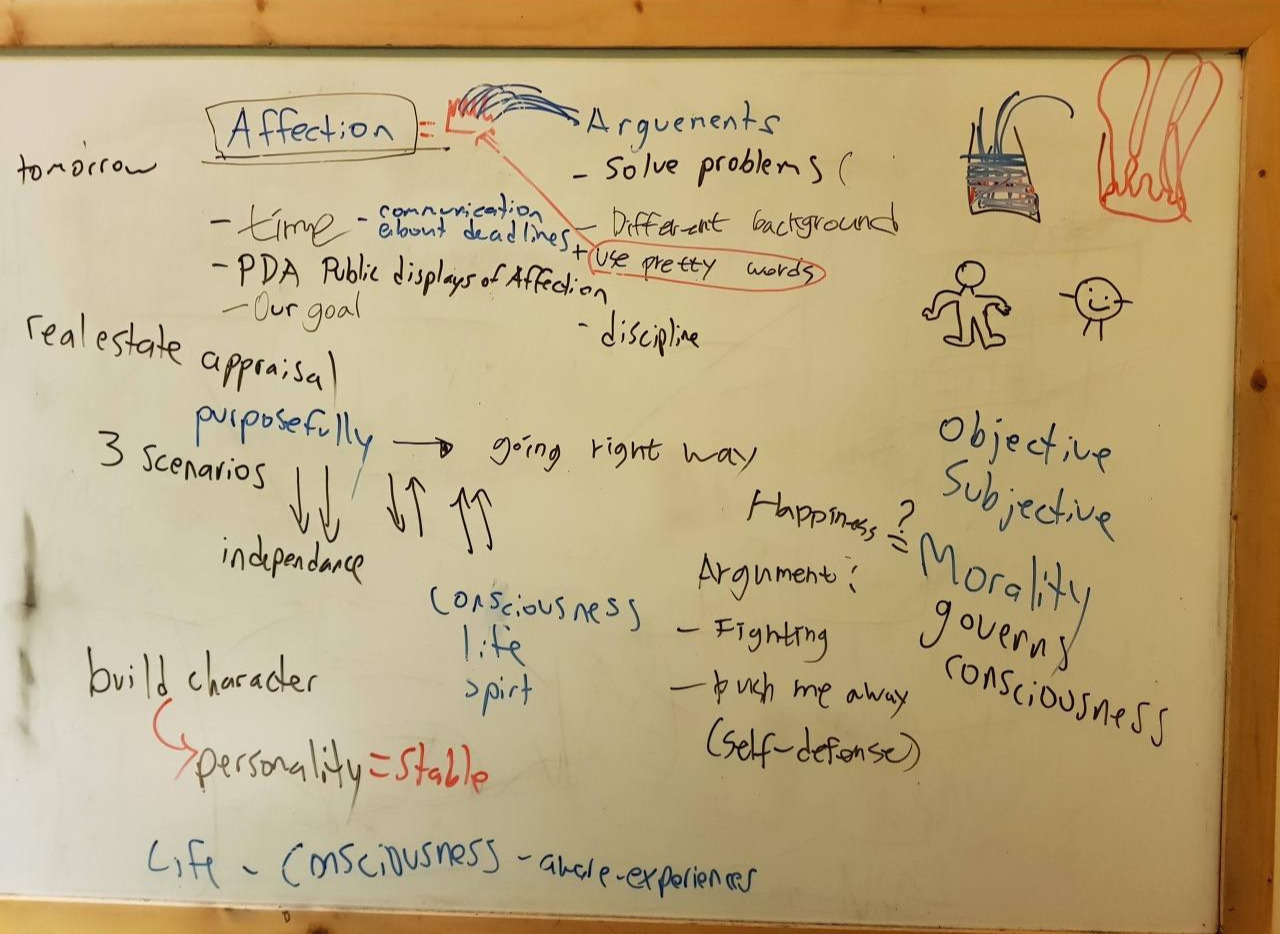 Affection =
Arguements
tomorrow
- solve problems (
- time - communication
about deadlines
- Different background
+ use pretty words
- PDA Public displays of Affection
- Our goal
- discipline
real estate appraisal
purposefully → going right way
3 scenarios ↓↓ ↓↑ ↑↑
independance
Objective
Subjective
Happiness ?=
Morality
governs
consciousness
Argument:
- Fighting
- push me away
(self-defense)
Consciousness
life
spirt
build character
personality = Stable
Life - Consciousness - aware-experiences